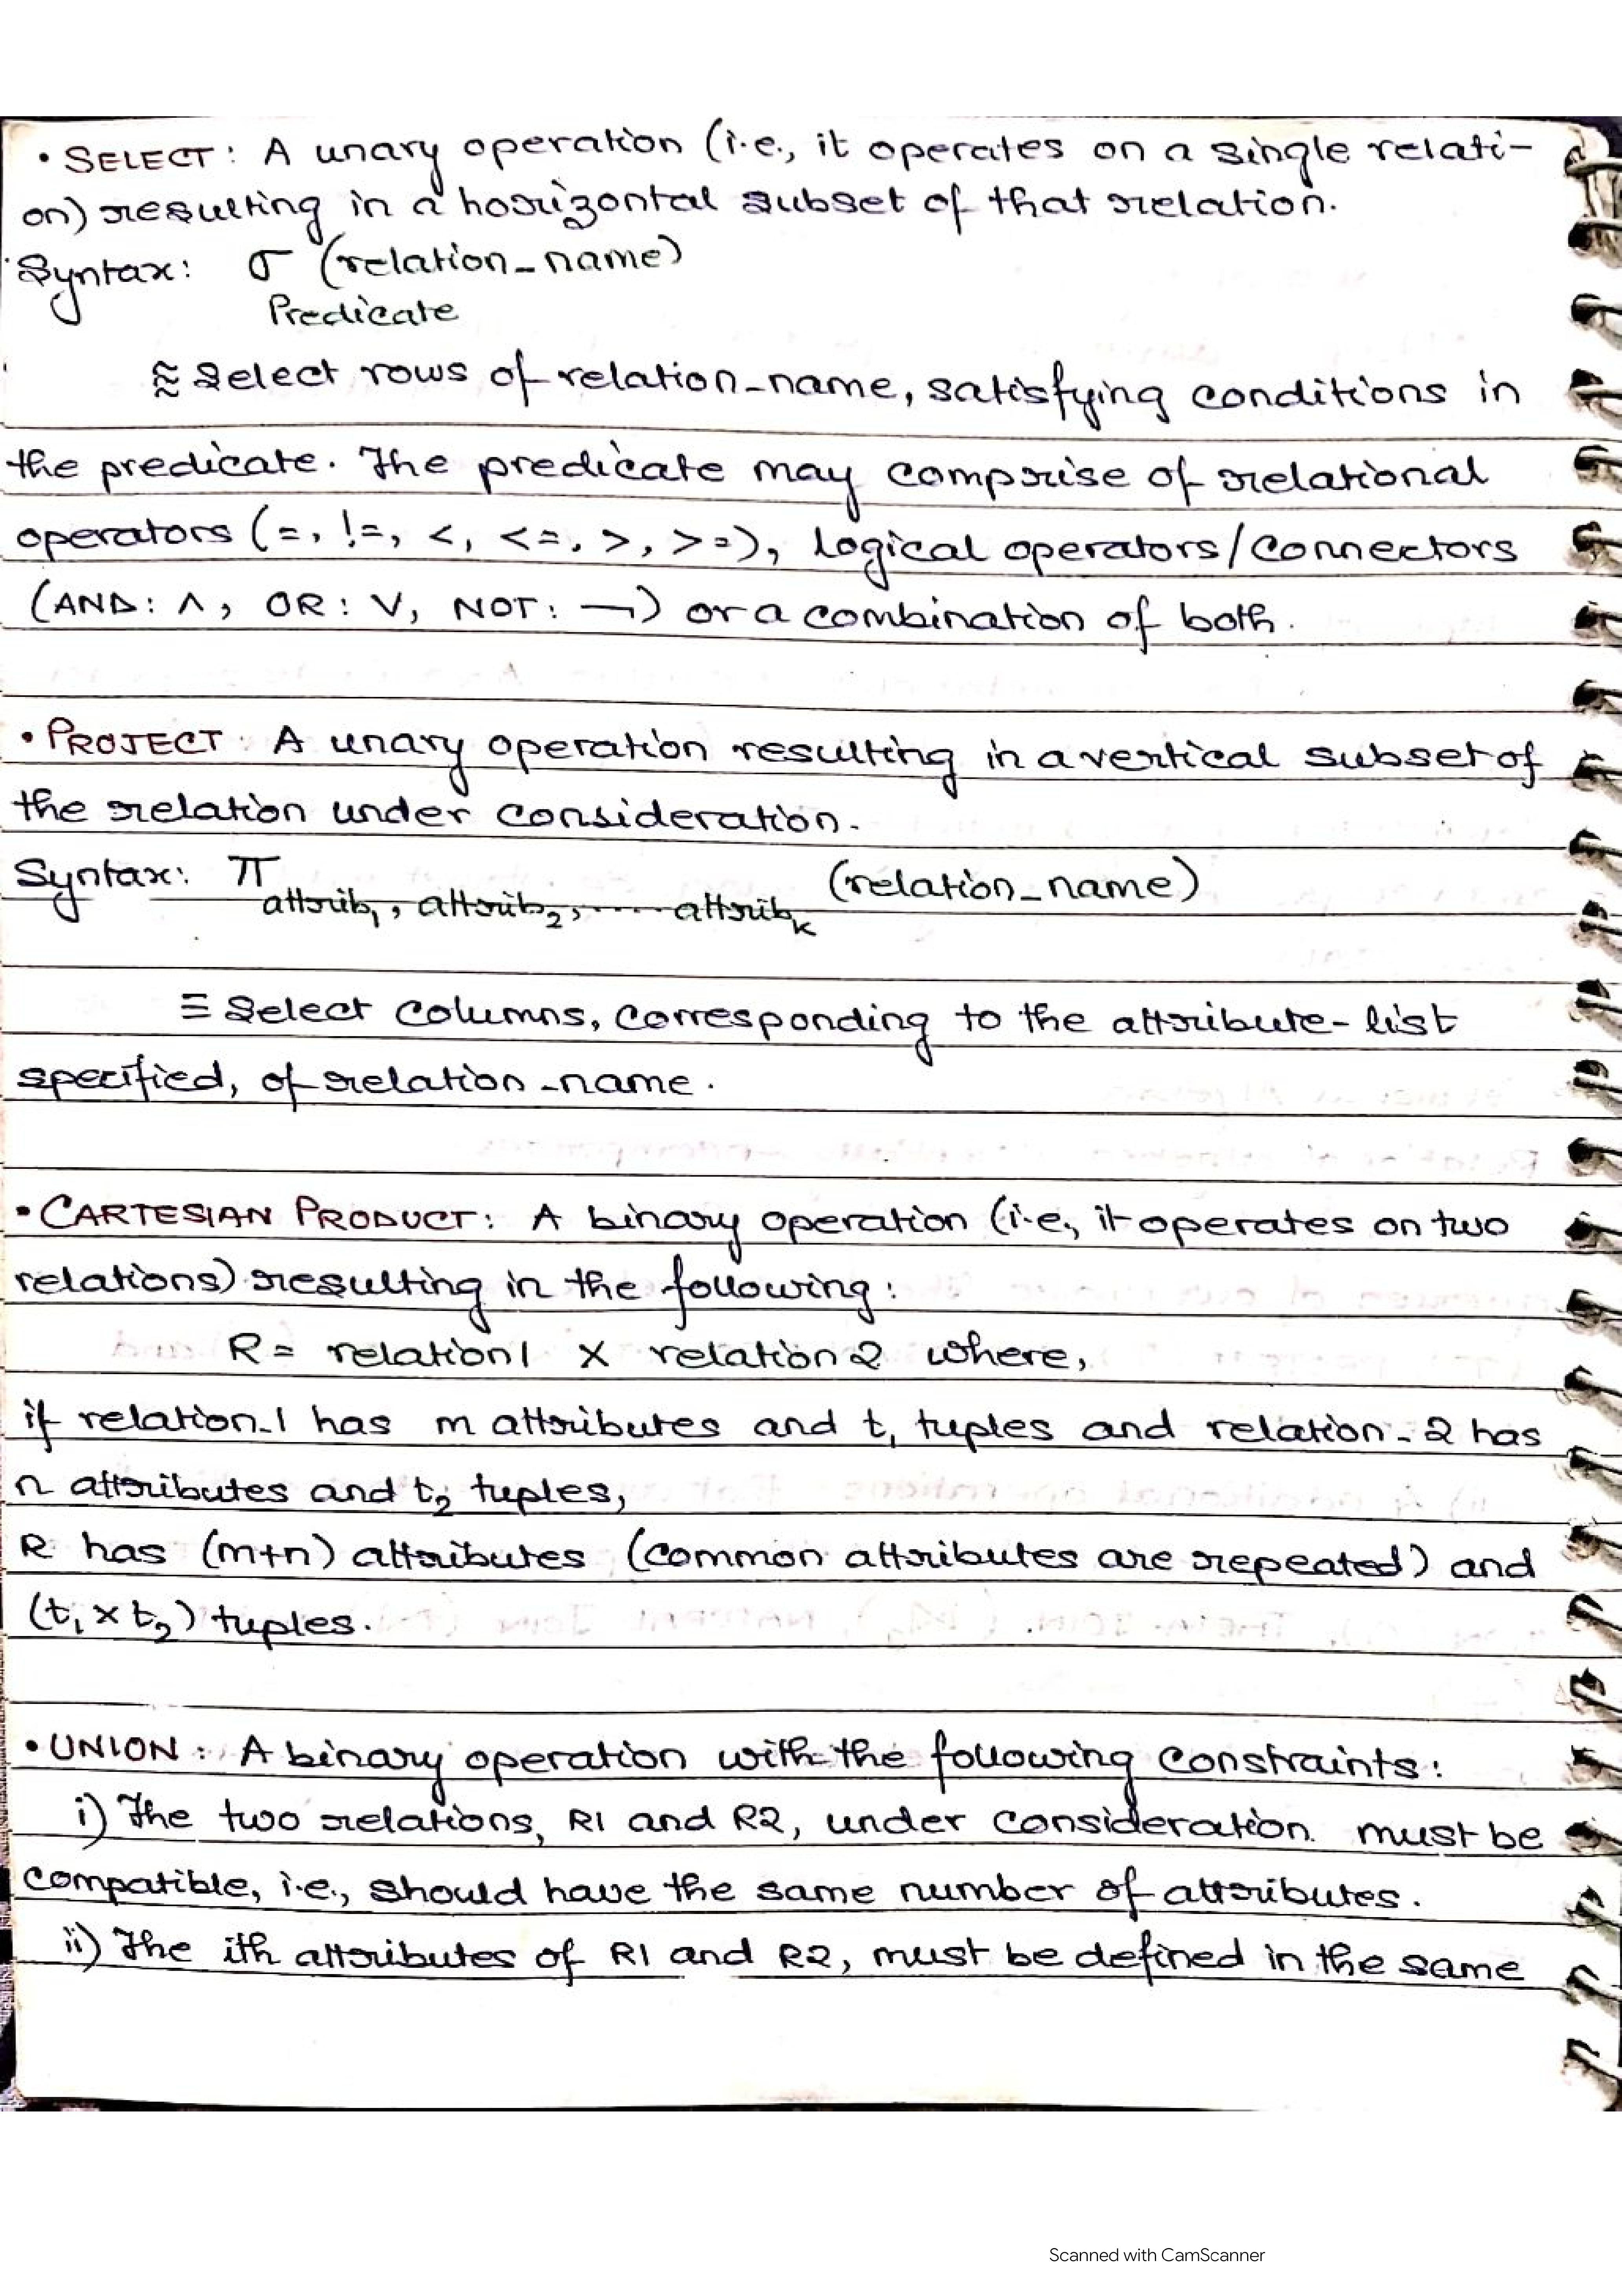 • SELECT: A unary operation (i.e., it operates on a single relati-
on) resulting in a horizontal subset of that relation.
Syntax: σ (relation_name)
Predicate
≈ Select rows of relation_name, satisfying conditions in
the predicate. The predicate may comprise of relational
operators (=, !=, <, <=, >, >=), logical operators/connectors
(AND: ∧, OR: ∨, NOT: ¬) or a combination of both.
• PROJECT: A unary operation resulting in a vertical subset of
the relation under consideration.
Syntax: π attrib₁, attrib₂, ..... attribₖ (relation_name)
≡ Select columns, corresponding to the attribute-list
specified, of relation_name.
• CARTESIAN PRODUCT: A binary operation (i.e., it operates on two
relations) resulting in the following:
R = relation1 X relation2 where,
if relation_1 has m attributes and t₁ tuples and relation_2 has
n attributes and t₂ tuples,
R has (m+n) attributes (common attributes are repeated) and
(t₁ x t₂) tuples.
• UNION: A binary operation with the following constraints:
i) The two relations, R1 and R2, under consideration must be
compatible, i.e., should have the same number of attributes.
ii) The ith attributes of R1 and R2, must be defined in the same
Scanned with CamScanner